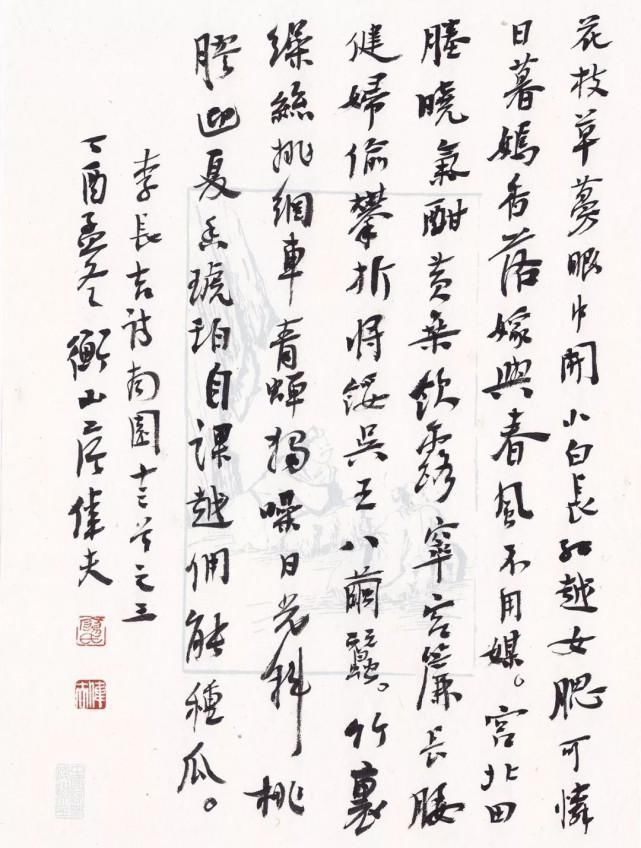 花枝草蔓眼中開小白長紅越女腮可憐
日暮嫣香落嫁與春風不用媒。宮北田
塍曉氣酣黄桑飲露窣宮簾長腰
健婦偷攀折將餧吳王八繭蠶。竹裏
繰絲挑網車青蟬獨噪日光斜桃
膠迎夏香琥珀自課越佣能種瓜。
李長吉詩南園十三首之三
丁酉孟冬衡山偉夫